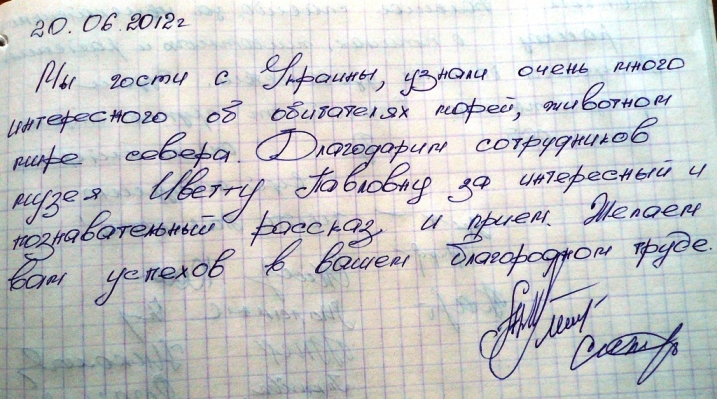 20.06.2012г
Мы гости с Украины, узнали очень много
интересного об обитателях морей, животном
мире севера. Благодарим сотрудников
музея Цветту Павловну за интересный и
познавательный рассказ и прием. Желаем
вам успехов в вашем благородном труде.